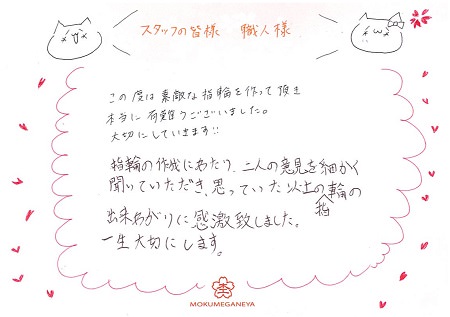 スタッフの皆様　職人様
この度は素敵な指輪を作って頂き
本当に有難うございました。
大切にしていきます!!
指輪の作成にあたり、二人の意見を細かく
聞いていただき、思っていた以上の指輪の
出来あがりに感激致しました。
一生大切にします。
MOKUMEGANEYA